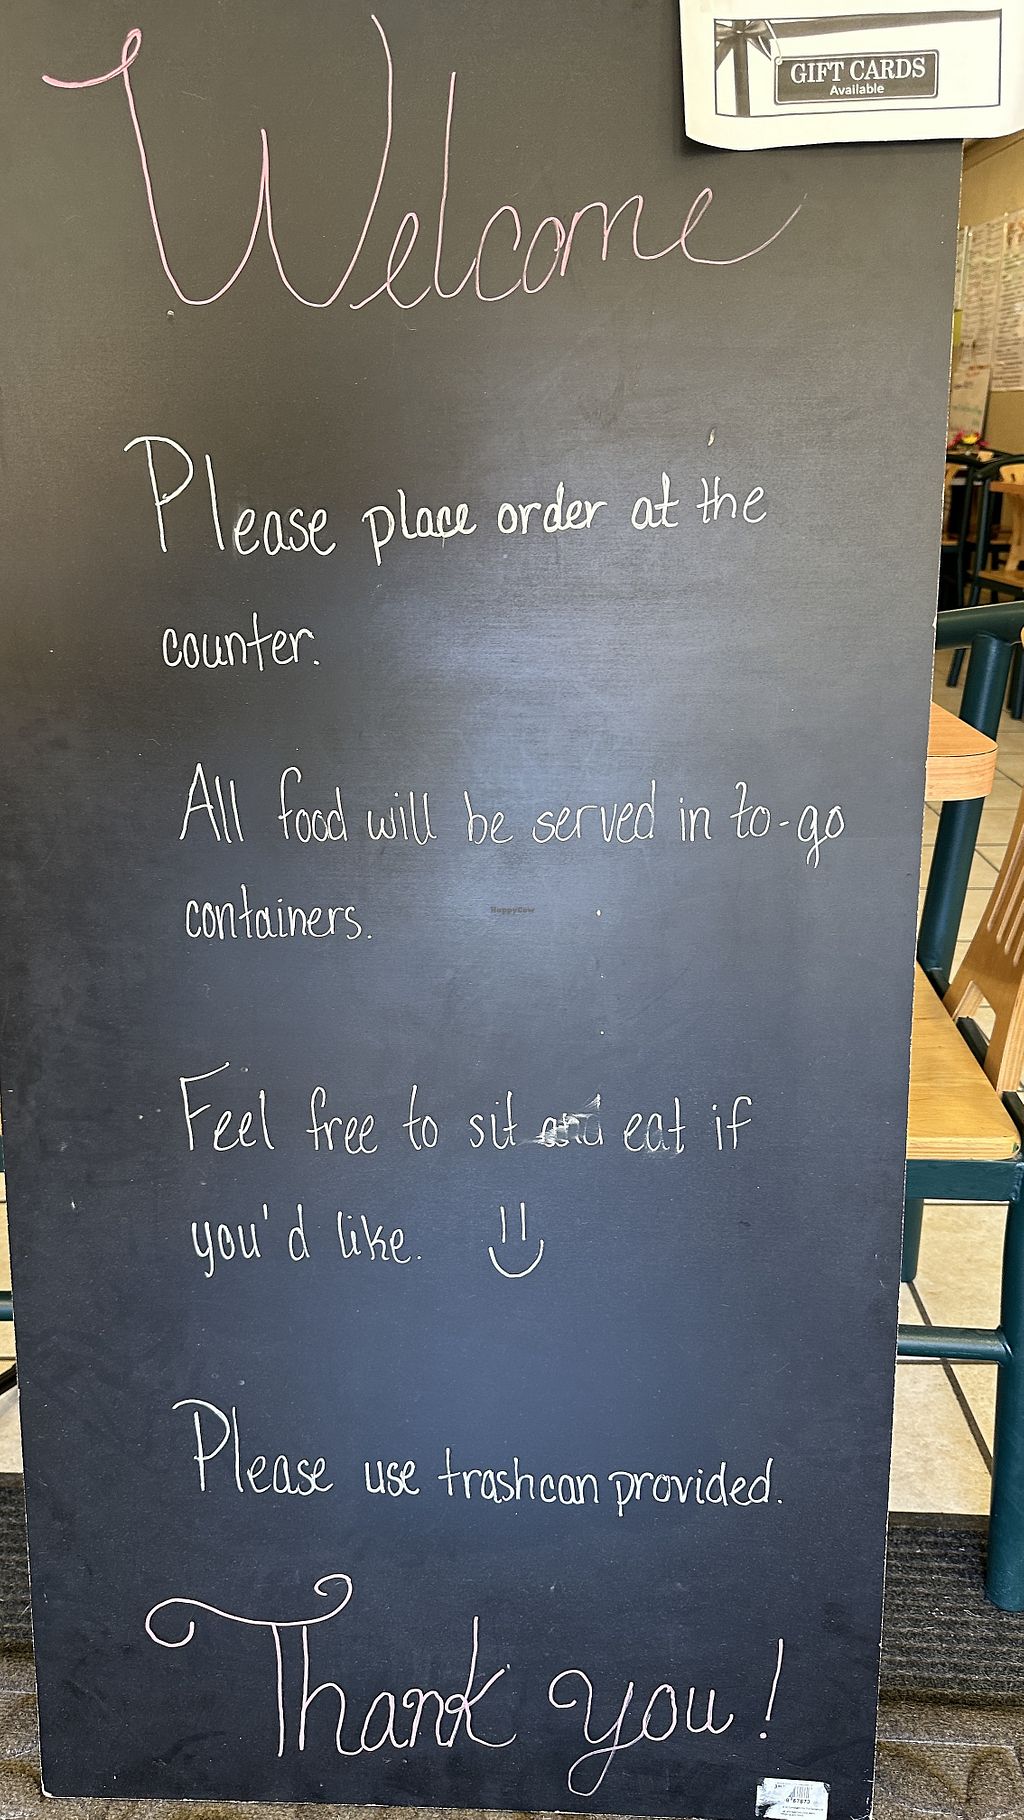 GIFT CARDS
Available
Welcome
Please place order at the
counter.
All food will be served in to-go
containers.
HappyCow
Feel free to sit and eat if
you'd like.
Please use trashcan provided.
Thank you!